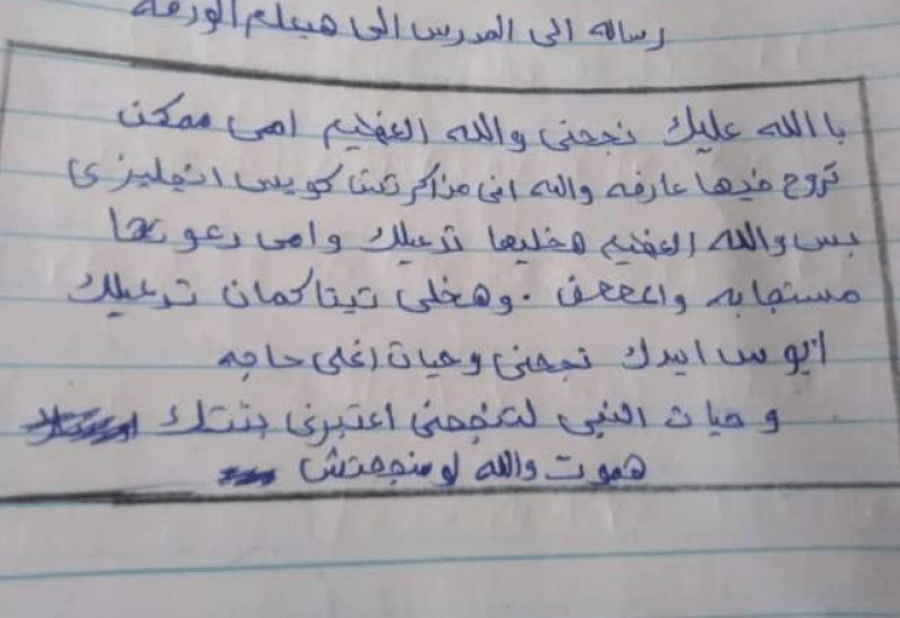 رساله الى المدرس الى هيسلم الورقه
با الله عليك نجحنى والله العظيم امى ممكن
تروح فيها عارفه والله انى مذاكرتش كويس انجليزى
بس والله العظيم هخليها تدعيلك وامى دعوتها
مستجابه . وهخلى تيتا كمان تدعيلك
ابوس ايدك نجحنى وحيات اغلى حاجه
وحيات النبى لتنجحنى اعتبرنى بنتك
هموت والله لو منجحتش